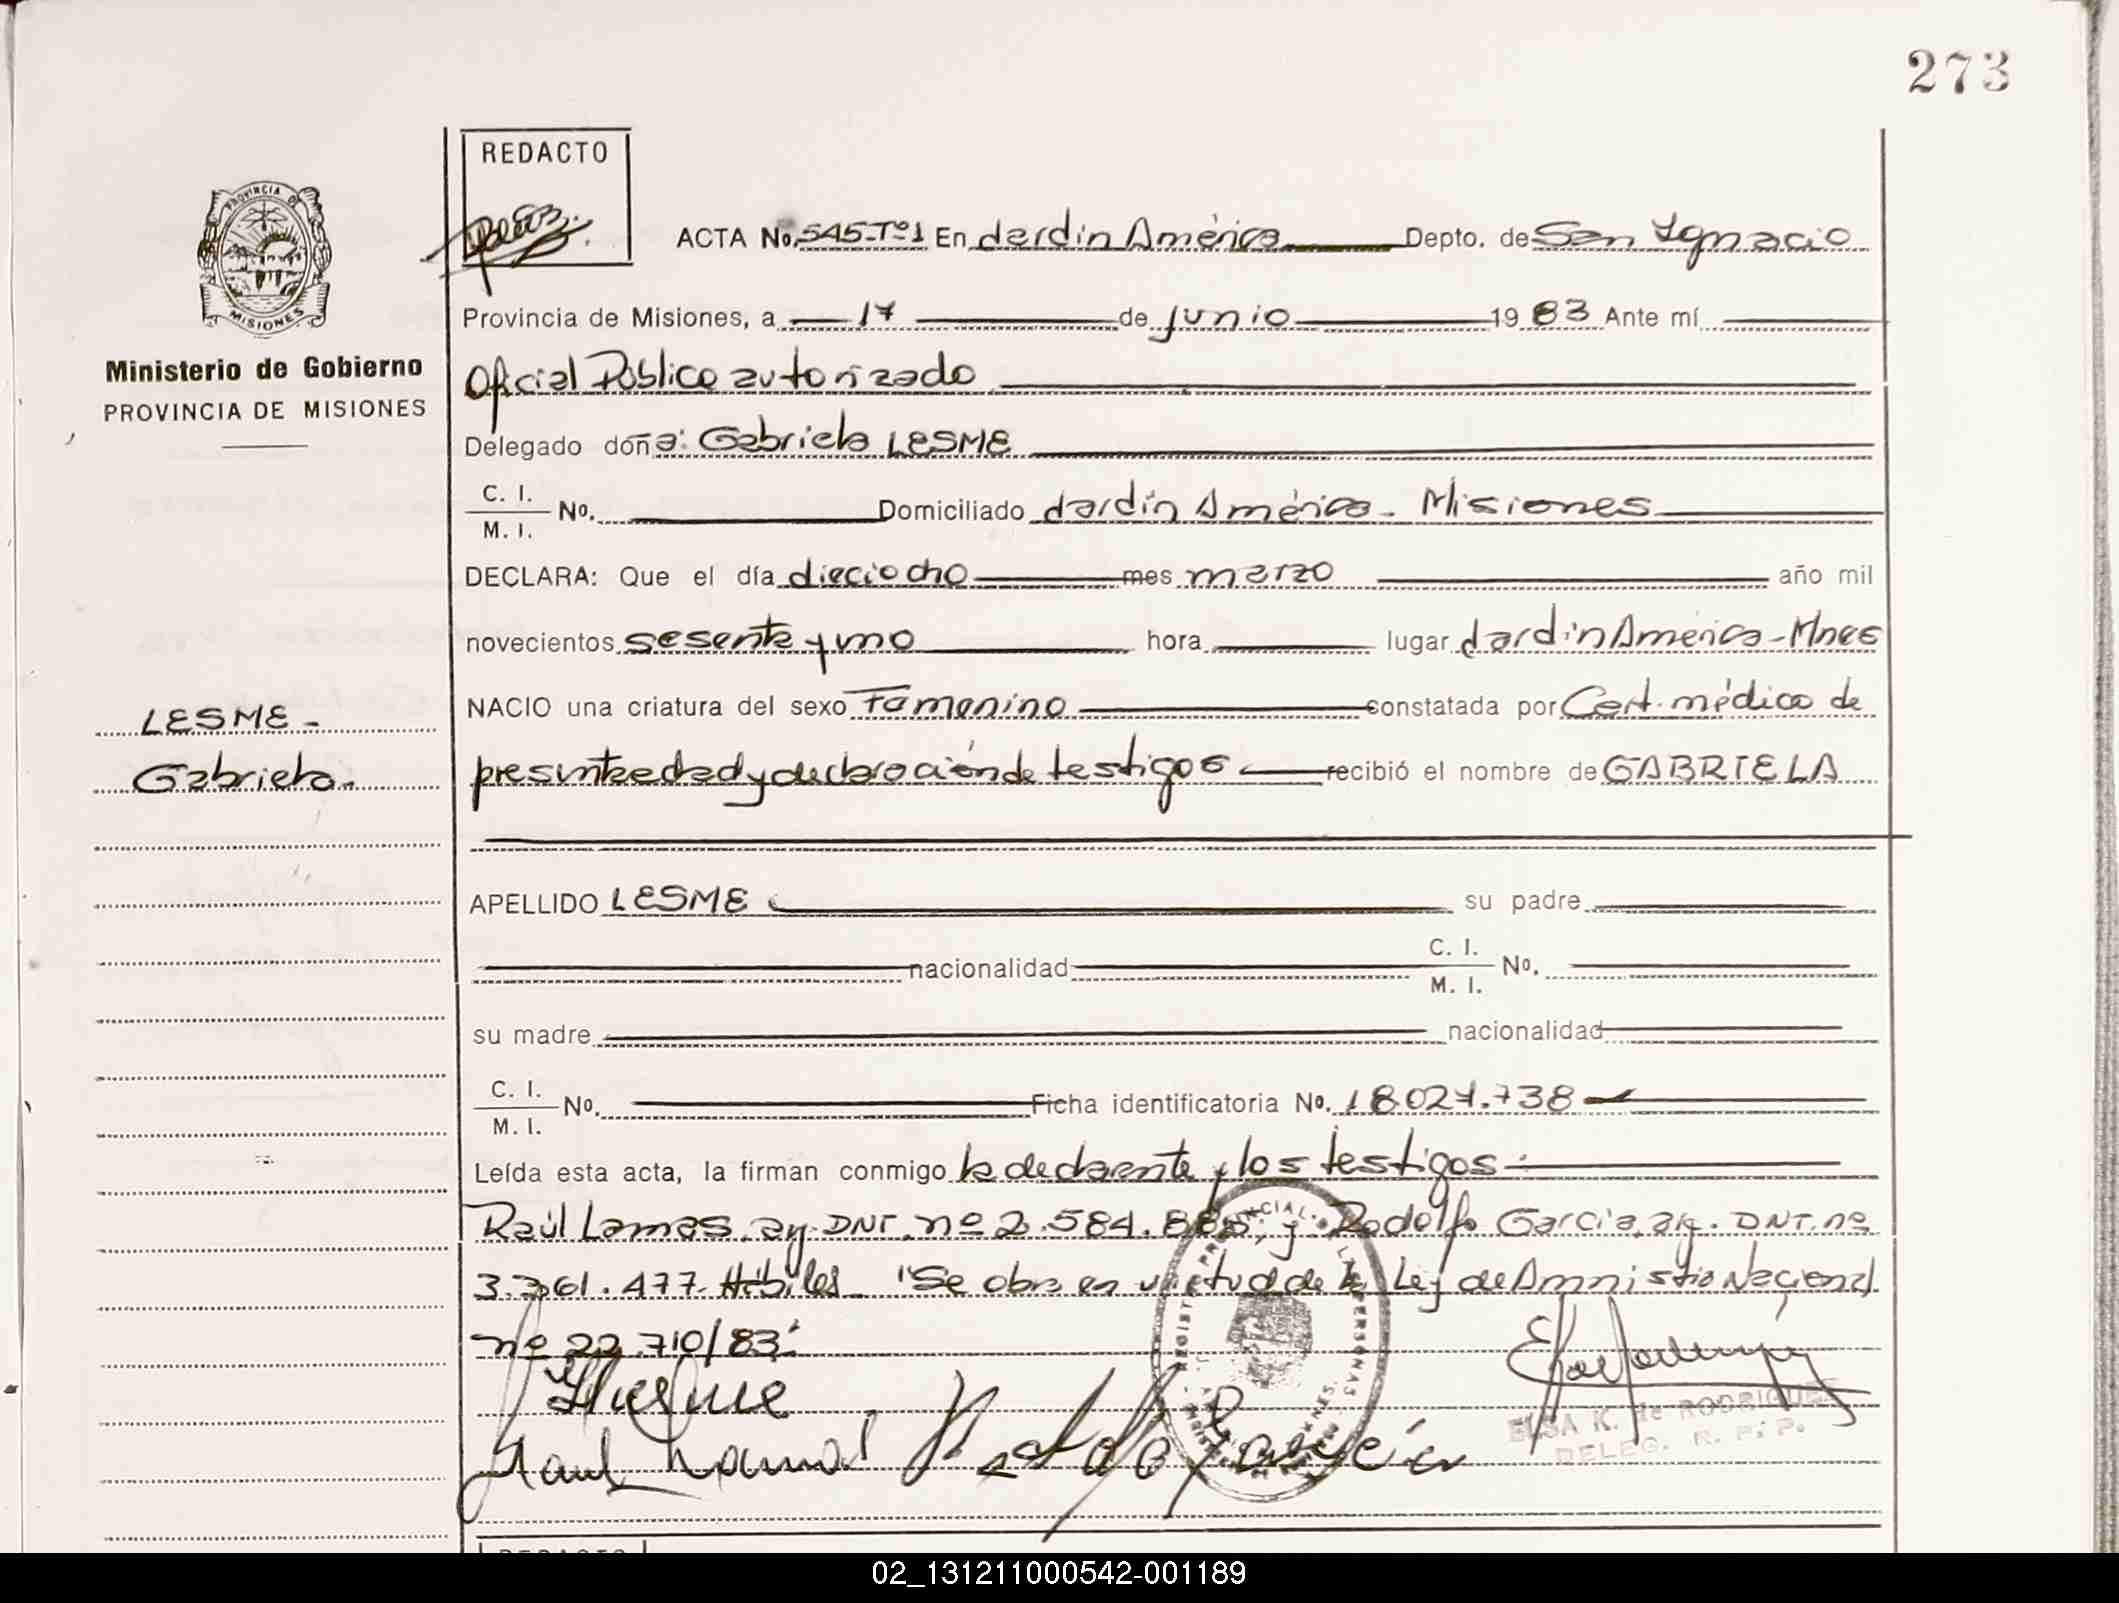 273
REDACTO
ACTA No. 545-Tº1 En Jardin América Depto. de San Ignacio
Provincia de Misiones, a 17 de junio 1983 Ante mí
Oficial Público autorizado
Ministerio de Gobierno
PROVINCIA DE MISIONES
Delegado doña: Gabriela LESME
C. I.
M. I. No. Domiciliado Jardín América - Misiones
DECLARA: Que el día dieciocho mes marzo año mil
novecientos sesenta y uno hora lugar Jardín América - Mnes
NACIO una criatura del sexo Famenino constatada por Cert. médico de
LESME -
presunta edad y declaración de testigos recibió el nombre de GABRIELA
Gabriela.
APELLIDO LESME su padre
nacionalidad C. I.
M. I. No.
su madre nacionalidad
C. I.
M. I. No. Ficha identificatoria No. 18.027.738
Leída esta acta, la firman conmigo la declarante y los testigos:
Raúl Lamas, ay. DNI. nº 2.584. y Rodolfo García, ay. DNI. nº
3.361.477. Hábiles "Se obra en virtud de la Ley de Amnistia Nacional
nº 22.710/83"
Raul Lamas
ELSA K. de RODRIGUEZ
DELEG. R. P. P.
PROVINCIA DE MISIONES
REDACTO
02_131211000542-001189